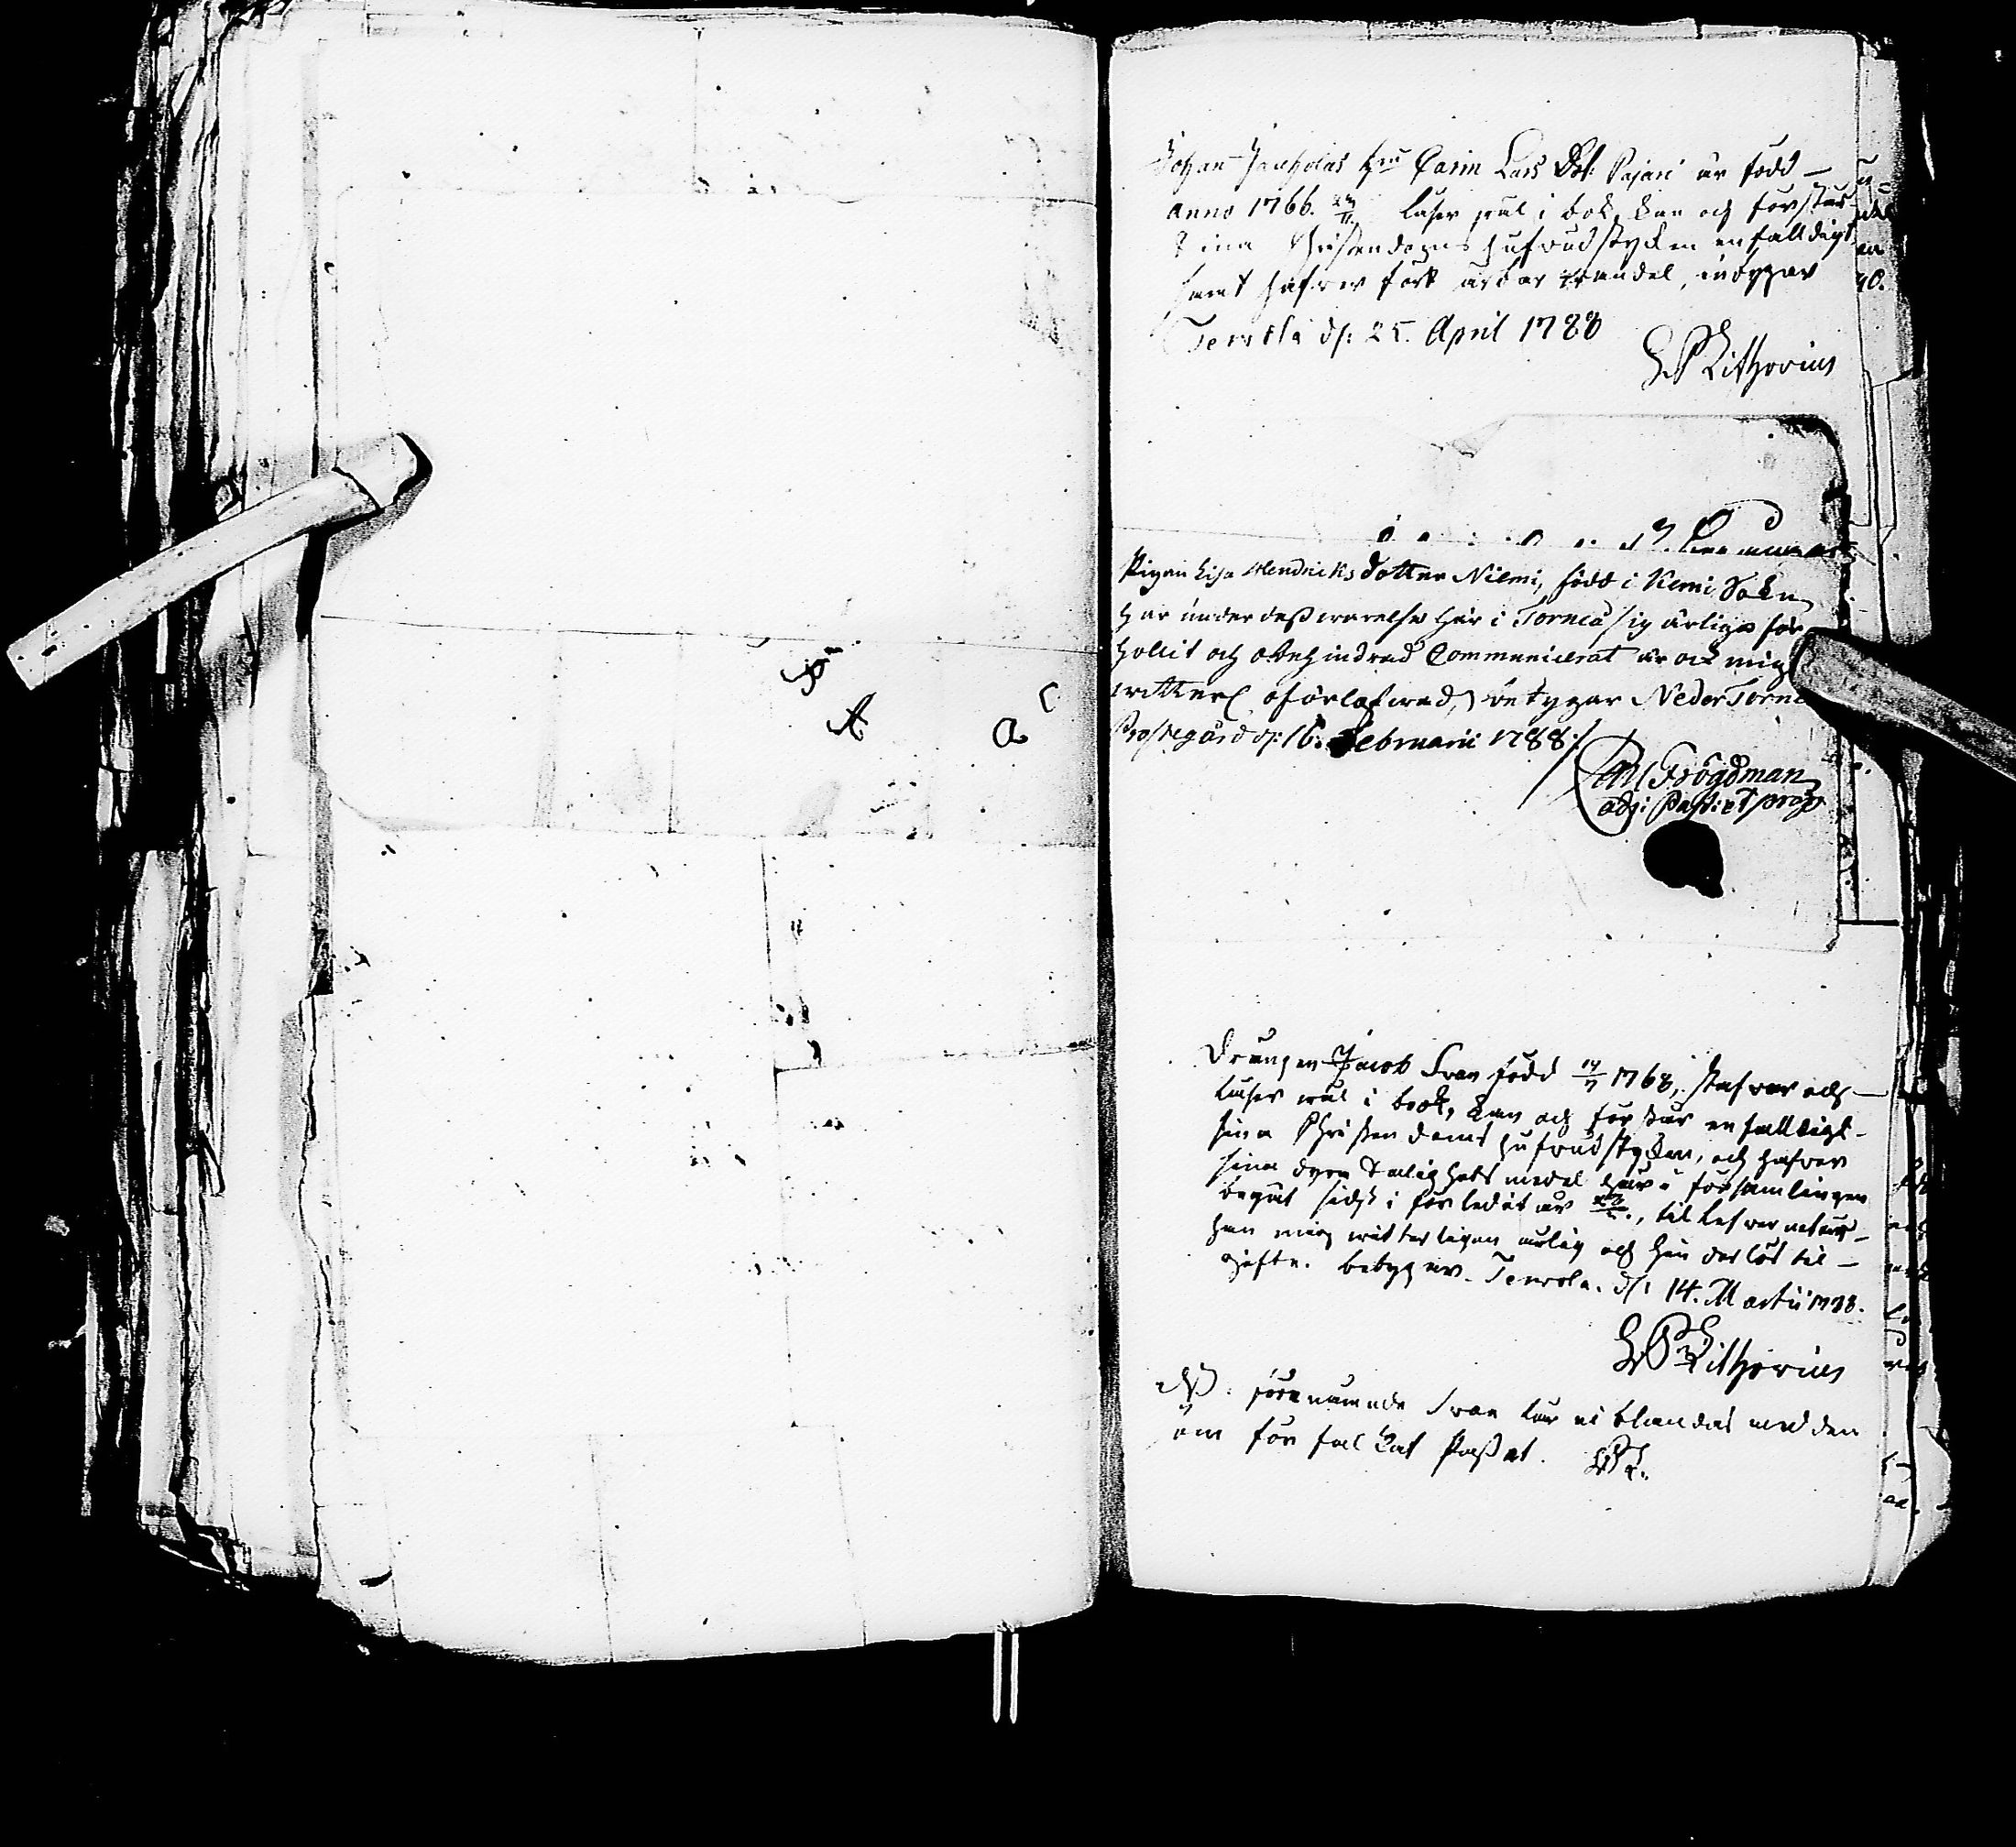 Johan Jaukolas h:u Carin Lars Dot: Pajari är född
anno 1766. 24/11 läser wäl i bok, kan och förstår
sina Christendoms hufwudstycken enfalldigt
samt hafwer fört ärbar wandel, intygar
Terwola d: 25. April 1788
Lithovius
Pigan Lisa Hendricks dotter Niemi, född i Kemi Sokn
har under dess warelse här i Torneå sig ärliga för
hållit och obehindrad Communicerat är ock mig
witterl. oförlofwad, betygar Neder Torne
Prostegård d: 16. Februarii 1788.
Frögdman
adj: Past: et
Drängen Jacob Swan född 14/7 1768, stafwar och
läser wäl i book, kan och förstår enfalldigt
sina Christendoms hufwudstycken, och hafwer
sina dyra Salighets medel här i församlingen
begåt sidst i förledit år, til lefwernet är
han mig witterligen ärlig och hinderlös til
gifte. betygar. Terwola. d: 14. Martii 1788.
Lithovius
förenämnde Swan lär ei blandas med den
om förfalskat Passet.